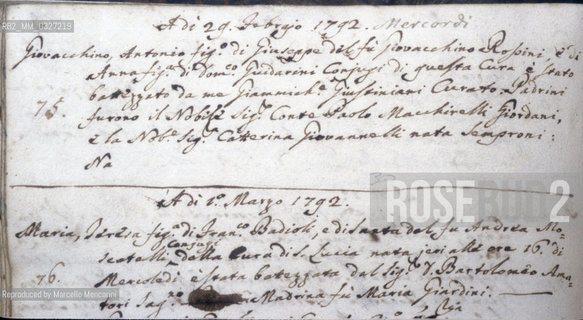 RB2 MM 0327219
A dì 29. Febrajo 1792. Mercordì
Giovacchino, Antonio fig.o di Giuseppe del fù Giovacchino Rossini e di
Anna fig.a di Dom.co Guidarini Conjugi di questa Cura è stato
battezzato da me Giammich.e Giustiniani Curato. Padrini
75. furono il Nobile Sig.r Conte Paolo Macchirelli Giordani,
e la Nob.e Sig.ra Catterina Giovannelli nata Semproni:
Na
A dì 1.o Marzo 1792.
ROSEBUD 2
Maria, Teresa fig.a di Fran.co Badioli, e di nata del fu Andrea Mo-
Conjugi
scatelli della Cura di S. Lucca nata jeri alle ore 16. di
76. Mercoledì è stata battezzata dal Sig.r D. Bartolomeo
tori Madrina fu Maria Giardini.
Reproduced by Marcello Mencarini